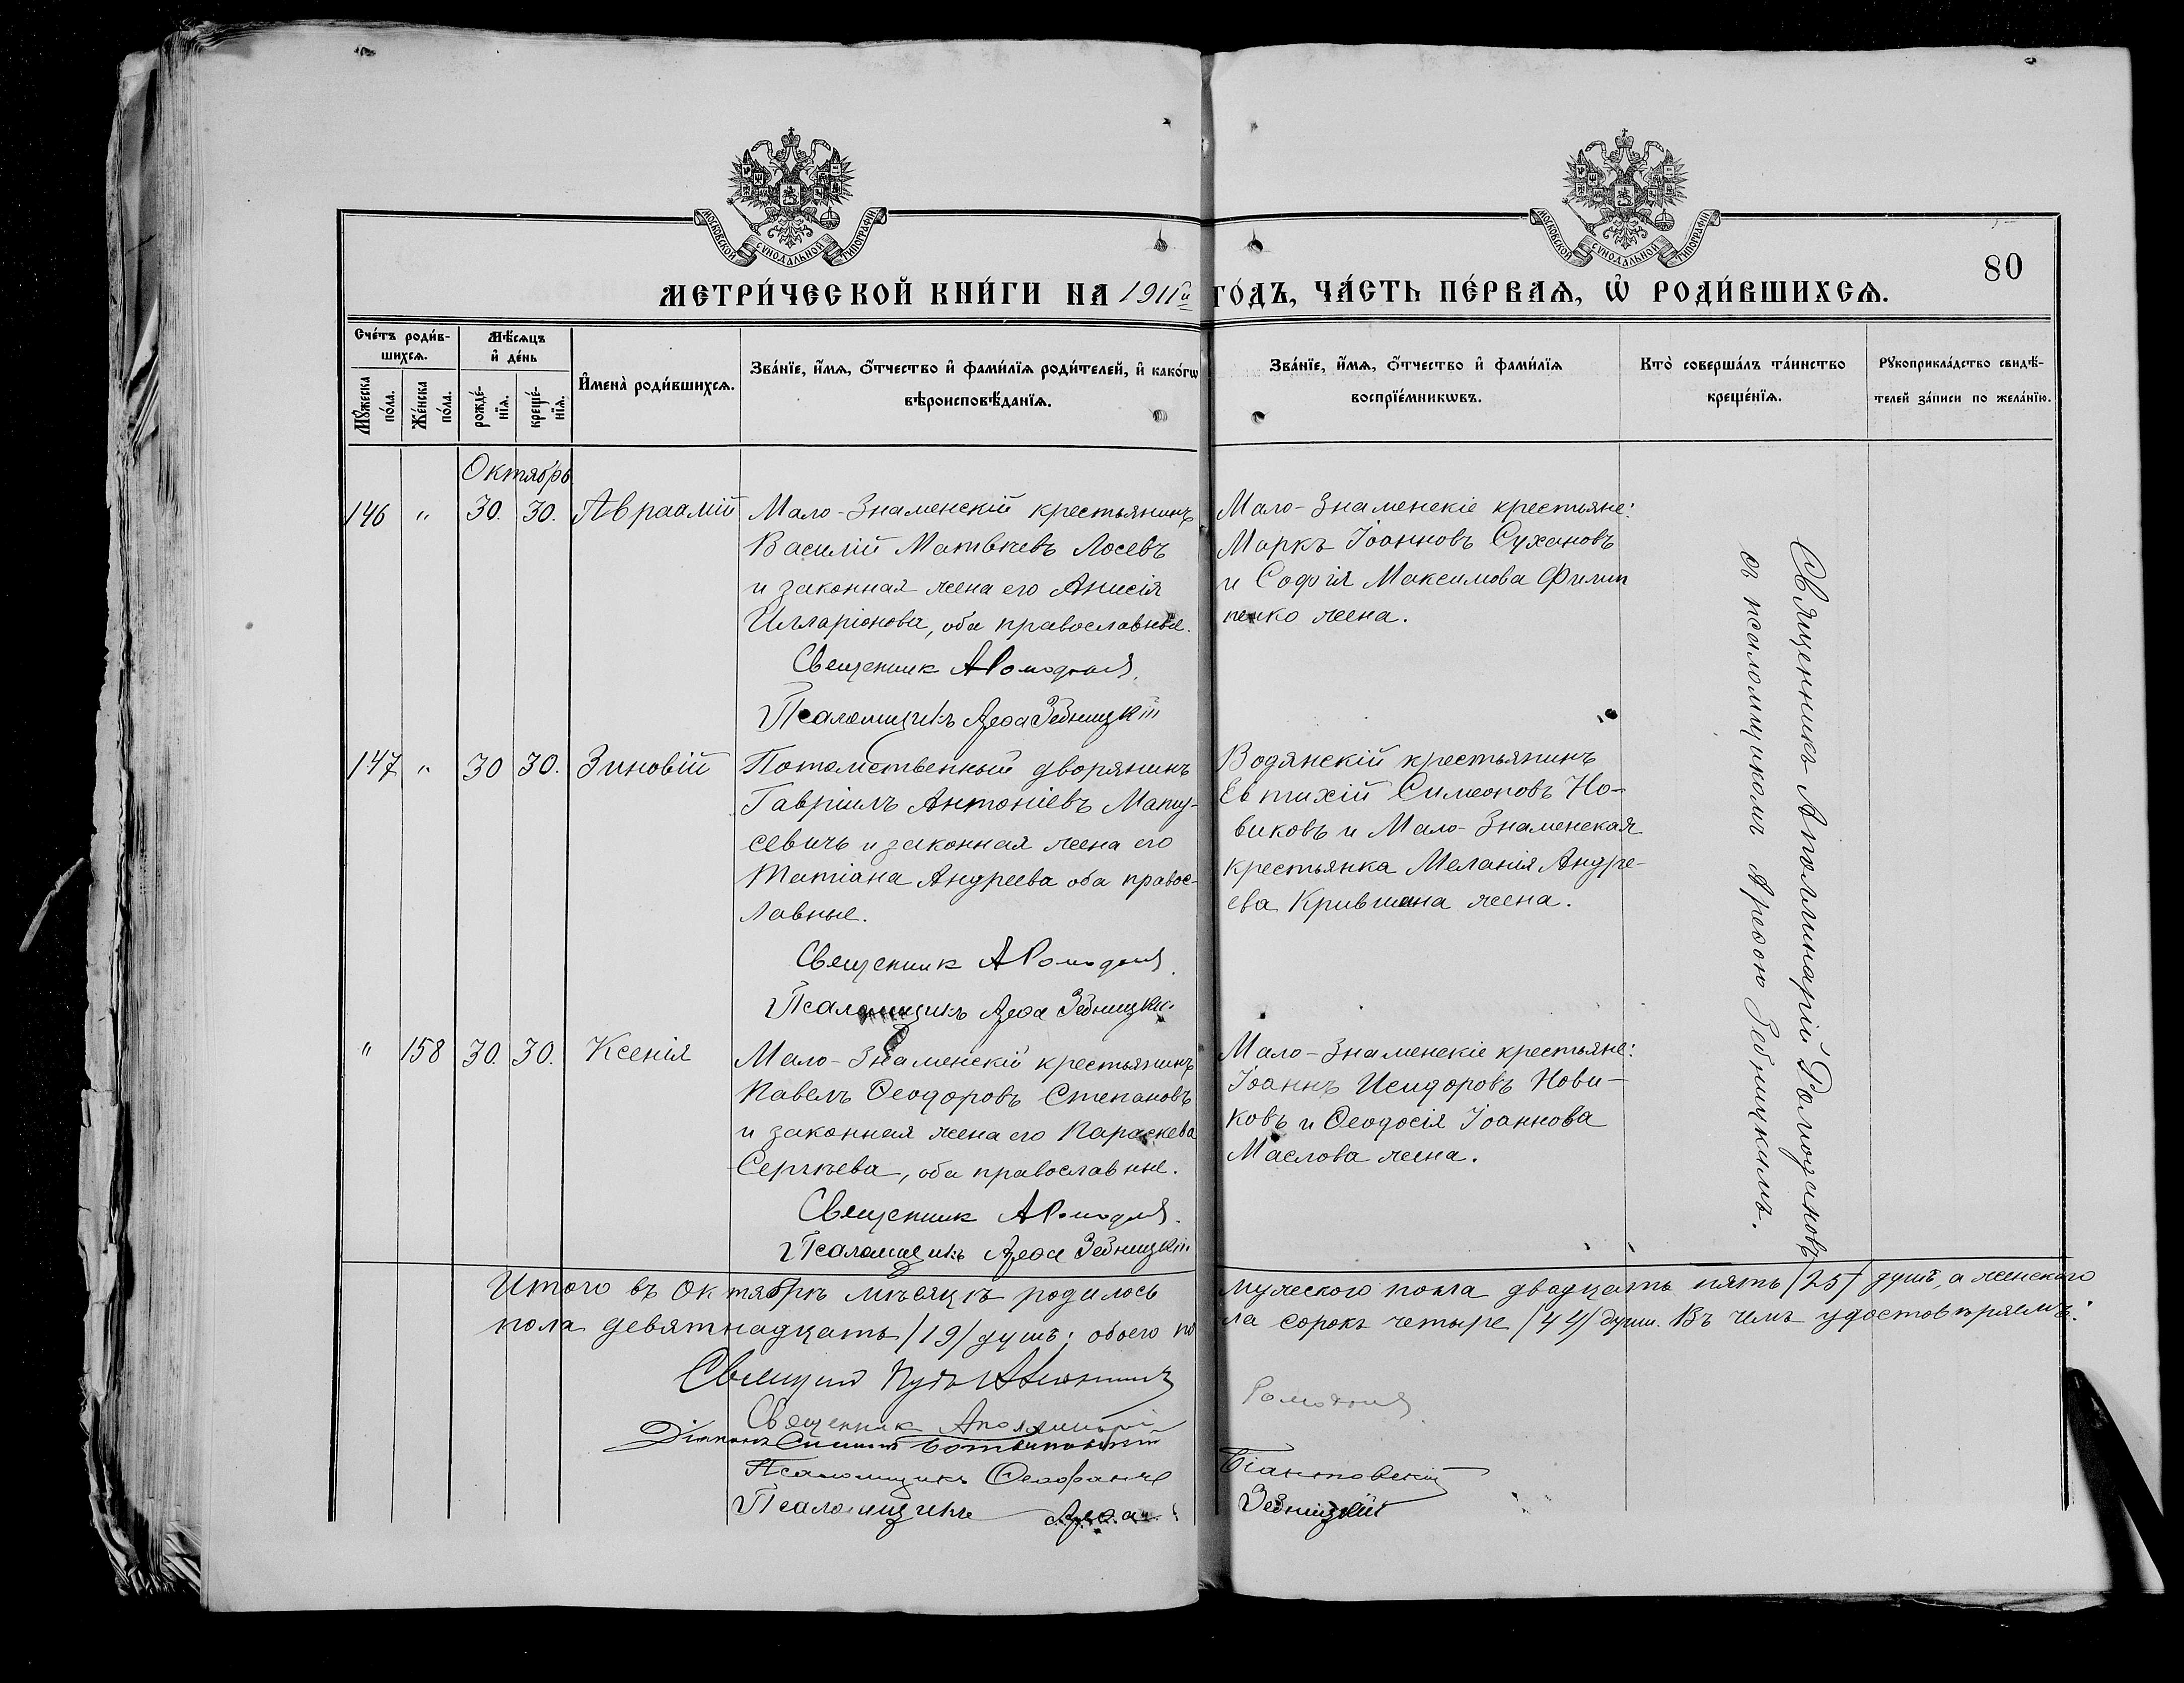 МОСКОВСКОЙ СѴНОДАЛЬНОЙ ТИПОГРАФІИ
МОСКОВСКОЙ СѴНОДАЛЬНОЙ ТИПОГРАФІИ
80
МЕТРИ́ЧЕСКОЙ КНИ́ГИ НА 1911й ГО́ДЪ, ЧА́СТЬ ПЕ́РВАѦ, Ѡ҆ РОДИ́ВШИХСѦ.
Сче́тъ роди́в-
шихсѧ.
Мꙋ́жеска по́ла.
Же́нска по́ла.
Мѣ́сѧцъ
и҆ де́нь
рожде́-нїѧ.
креще́-нїѧ.
И҆мена̀ роди́вшихсѧ.
Зва́нїе, и҆́мѧ, ѻ҆́тчество и҆ фами́лїѧ роди́телей, и҆ како́гѡ
вѣроисповѣ́данїѧ.
Зва́нїе, и҆́мѧ, ѻ҆́тчество и҆ фами́лїѧ
воспрїе́мникѡвъ.
Кто̀ соверша́лъ та́инство
креще́нїѧ.
Рꙋкоприкла́дство свидѣ́-
телей за́писи по жела́нїю.
Октябрь
146 " 30. 30. Авраамій
Мало-Знаменскій крестьянинъ
Василій Матвѣевъ Лосевъ
и законная жена его Анисія
Илларіонова, оба православные.
Священник А Ромоданов
Псаломщикъ Арефа Зебницкій
Мало-Знаменскіе крестьяне:
Маркъ Іоанновъ Сухановъ
и Софія Максимова Филип
пенко жена.
147 " 30 30. Зиновій
Потомственный дворянинъ
Гавріилъ Антоніевъ Мату-
севичъ и законная жена его
Татіана Андреева оба правос-
лавные.
Священник А Ромоданов
Псаломщикъ Арефа Зебницкій
Водянскій крестьянинъ
Евтихій Симеоновъ Но-
виковъ и Мало-Знаменская
крестьянка Меланія Андре-
ева Крившена жена.
" 158 30. 30. Ксенія
Мало-Знаменскій крестьянинъ
Павелъ Ѳеодоровъ Степановъ
и законная жена его Параскева
Сергѣева, оба православные.
Священник А Ромоданов.
Псаломщикъ Арефа Зебницкій
Мало-Знаменскіе крестьяне:
Іоаннъ Исидоровъ Нови-
ковъ и Ѳеодосія Іоаннова
Маслова жена.
Священникъ Аполлинарій Ромодановъ
съ псаломщикомъ Арефою Зебницкимъ.
Итого въ Октябрѣ мѣсяцѣ родилось мужеского пола двадцать пять /25/ душъ, а женскаго
пола девятнадцать /19/ душъ; обоего пола сорокъ четыре /44/ души. Въ чемъ удостовѣряемъ:
Священник Аполлинарій Ромоданов
Діаконъ
Псаломщикъ Ѳеофанъ Біантовскій
Псаломщикъ Арефа Зебницкій